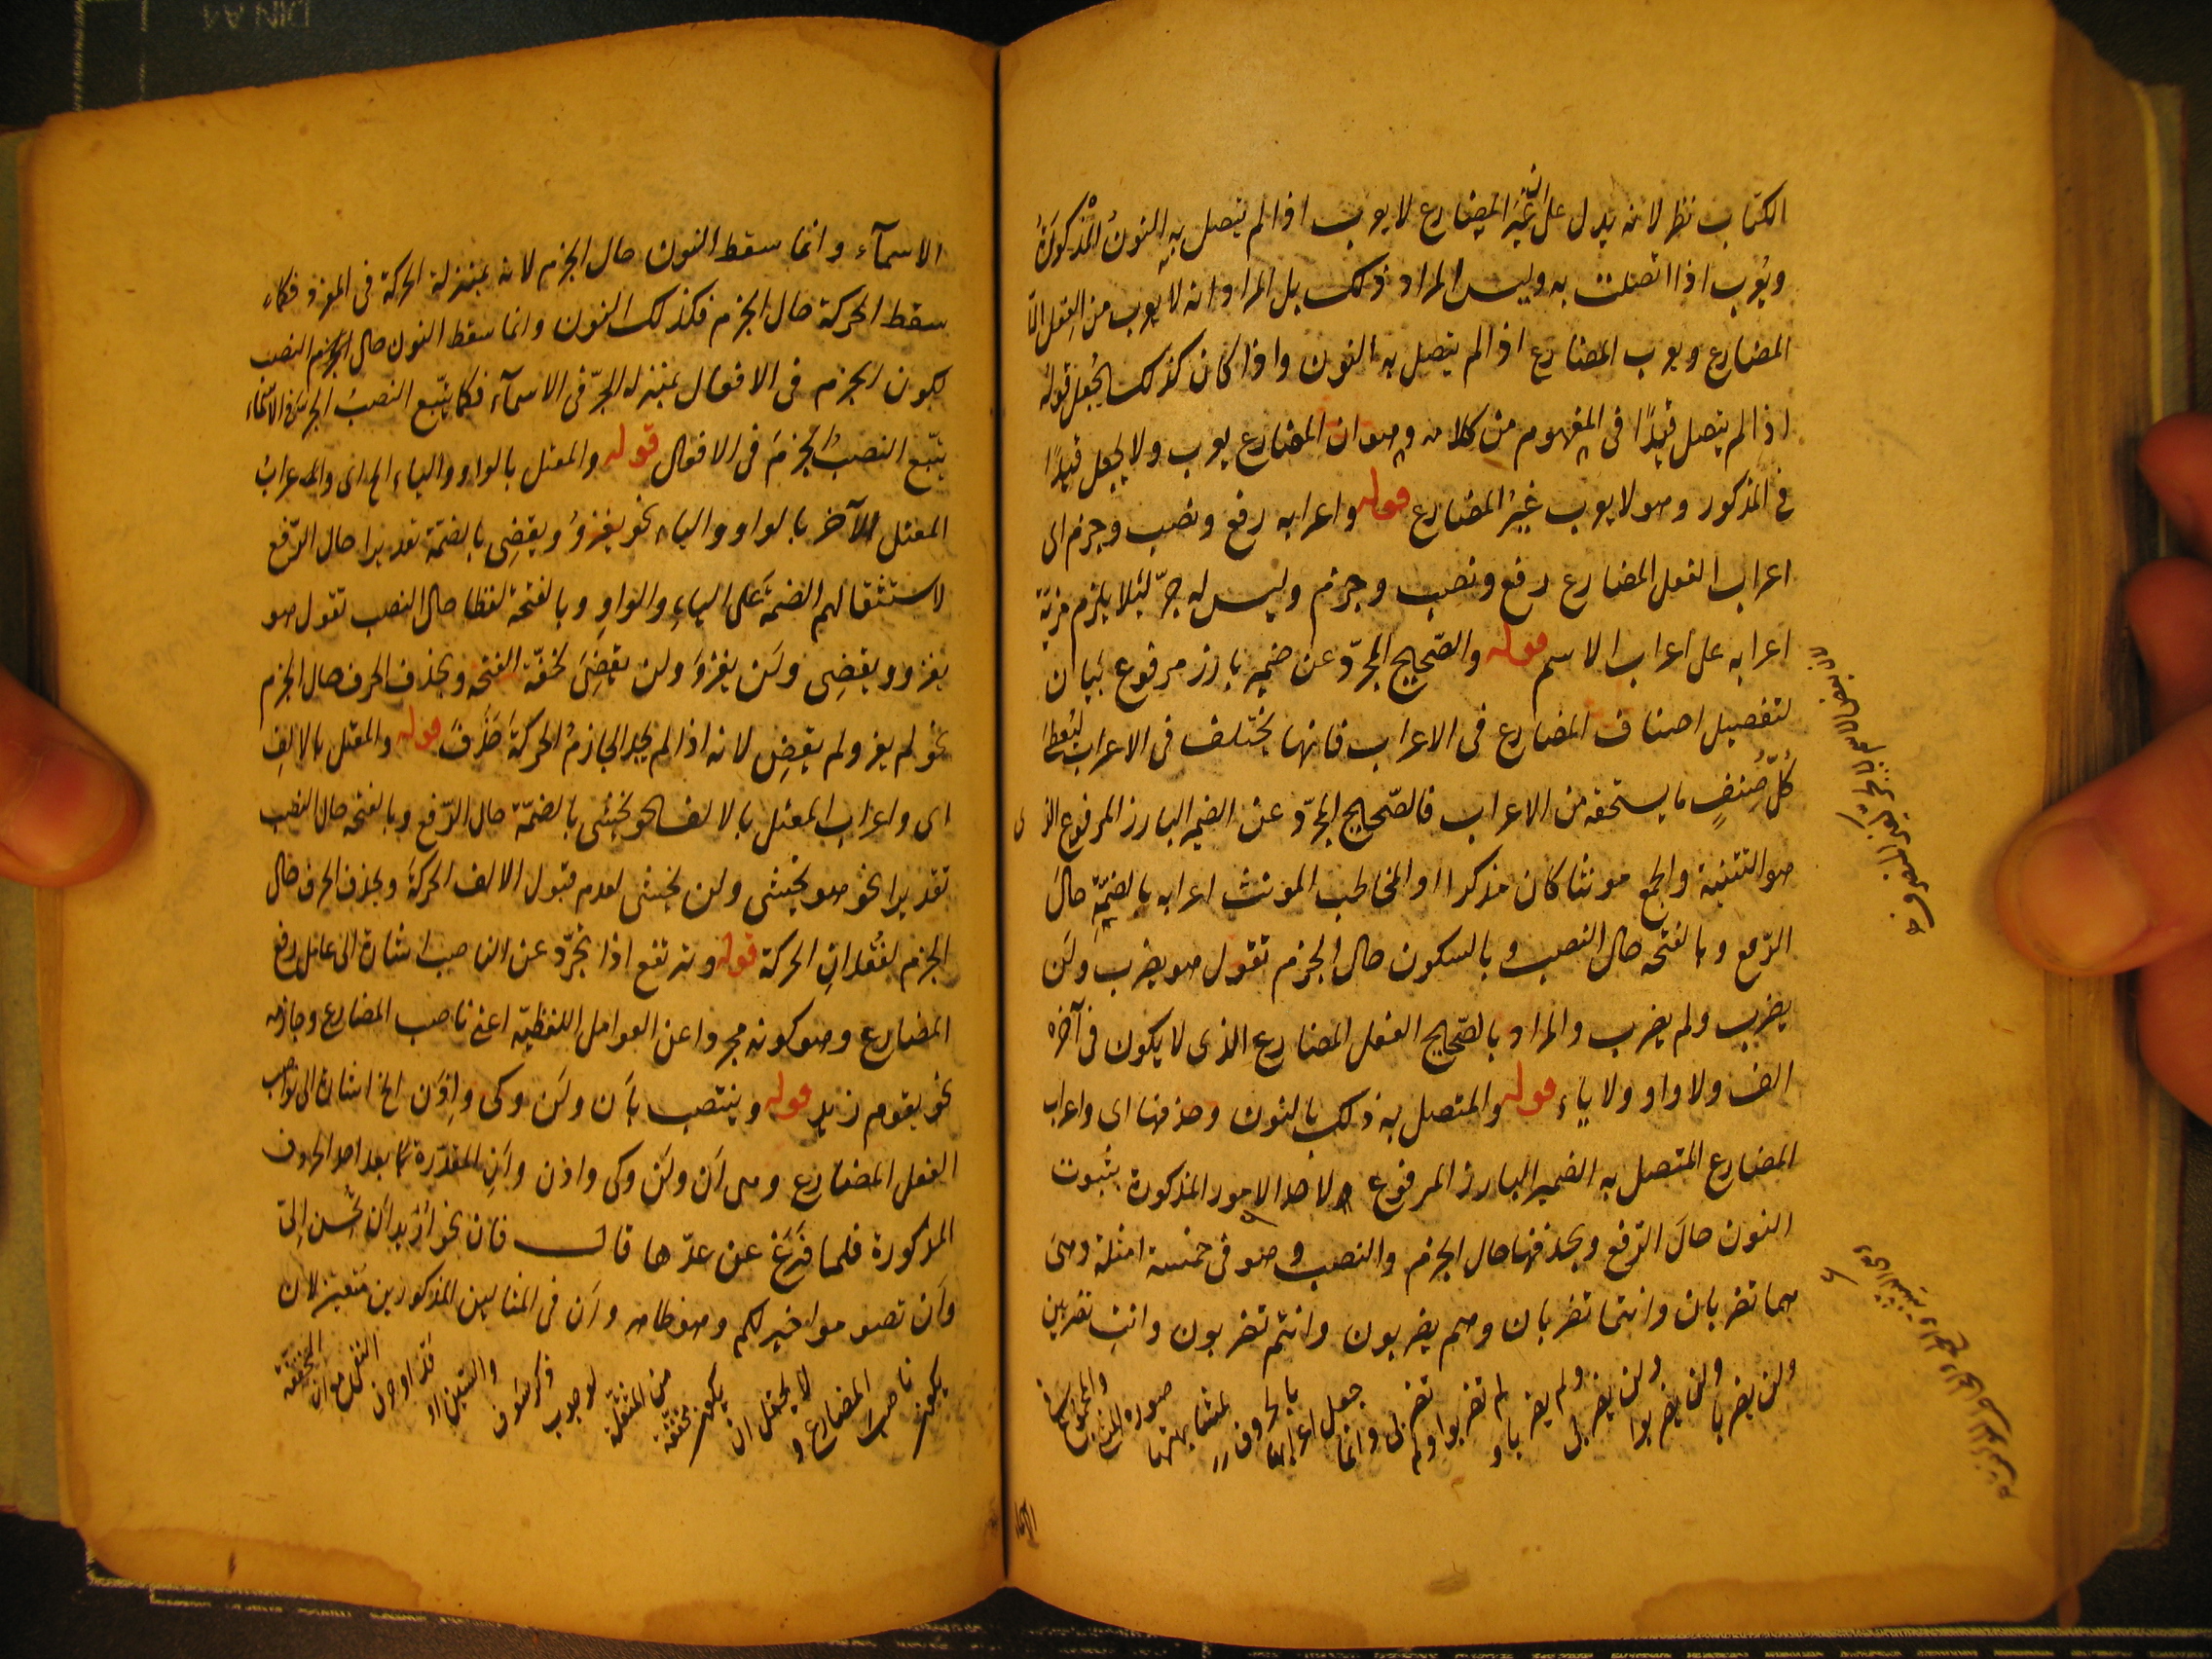 الكتاب نظر لانه يدل على ان غير المضارع لا يعرب اذا لم يتصل به النون المذكورة
ويعرب اذا اتصلت به وليس المراد ذلك بل المراد انه لا يعرب من الفعل الا
المضارع ويعرب المضارع اذا لم يتصل به النون واذا كان كذلك يجعل قوله
اذا لم يتصل قيدًا فى المفهوم من كلامه وهو ان المضارع يعرب ولا يجعل قيدًا
فى المذكور وهو لا يعرب غير المضارع قوله واعرابه رفع ونصب وجزم اى
اعراب الفعل المضارع رفع ونصب وجزم وليس له جرّ لئلا يلزم مزيّة
اعرابه على اعراب الاسم قوله والصّحيح المجرّد عن ضمير بارز مرفوع بيان
لتفصيل اصناف المضارع فى الاعراب فانها يختلف فى الاعراب ليُعطا
كُلّ صِنفٍ ما يستحقه من الاعراب فالصّحيح المجرّد عن الضمير البارز المرفوع الذى
هو التثنية والجمع مونثا كان مذكرا او المخاطب المونث اعرابه بالضمّة حال
الرّفع وبالفتحة حال النصب وبالسكون حال الجزم تقول هو يضرب ولَن
يضرب ولم يضرب والمراد بالصّحيح الفعل المضارع الذى لا يكون فى آخره
الف ولا واو ولا ياء قوله والمتصل به ذلك بالنون وحذفها اى واعراب
المضارع المتصل به الضمير البارز المرفوع لاحد الامور المذكورة بثبوت
النون حال الرّفع وبحذفها حال الجزم والنصب وهو فى خمسة امثلة وهى
هما تضربان وانتما تضربان وهم يضربون وانتم تضربون وانت تضربين
ولن يضربا ولن يضربوا ولن يضربى ولم يضربا و لم تضربوا ولم تضربى وانما جعل اعرابها بالحروف لمشابهتها صورة المثنى والمجموع من
الاسمآء وانما سقط النون حال الجزم لانه بمنزلة الحركة فى المفرد فكما
سقط الحركة حال الجزم فكذلك النون وانما سقط النون حال النصب
لكون الجزم فى الافعال بمنزلة الجرّ فى الاسمآء فكما يتّبع النصبُ الجرّ فى الاسماء
يتّبع النصبُ الجزمَ فى الافعال قوله والمعتل بالواو والياء الخ اى والاعرابُ
المعتل الآخر بالواو والياء نحو يغزوُ ويقضِى بالضمّة تقديرا حال الرّفع
لاستثقالهم الضمة على الياءِ والواوِ وبالفتحة لفظا حال النصب تقول هو
يغزو ويقضِى ولَن يغزوَ ولن يقضِىَ لخفّة الفتحة وبحذف الحرف حال الجزم
نحو لم يغز ولم يقضِ لانه اذا لم يجد الجازمُ الحركةَ حَذَفَ قوله والمعتل بالالفِ
اى واعراب المعتل بالالف نحو يخشى بالضمّة حال الرّفع وبالفتحة حال النصب
تقديرا نحو هو يخشى ولن يخشى لعدم قبول الالف الحركةَ وبحذف الحرف حال
الجزم لفُقدانِ الحركة قوله ويرتفع اذا تجرّد عن الناصب اشارة الى عامل رفع
المضارع وهو كونه مجردا عن العوامل اللفظيّة اعنى ناصب المضارع وجازمه
نحو يقوم زيد قوله وينتصب بأن ولَن وكى واِذَن الخ اشارة الى نواصب
الفعل المضارع وهى اَن ولَن وكى واذن واَنِ المقدّرة بما بعد احد الحروف
المذكورة فلما فَرَغَ عن عدّها قال فان نحو اُرَيد اَن تُحسن اِلىّ
وأن تصوموا خير لكم وهو ظاهر واَن فى المثالين المذكورين متعيّنه لان
يكون ناصبَ المضارع و لا يحتمل ان يكون مخففّة من المثقلّة لوجوب ذكر سَوف والسّين او قد او حرف النفى مع ان المخففّة